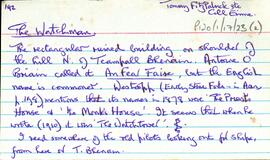 142
Tommy Fitzpatrick the
Cill Enna.
P120/1/17/23 (2)
The Watchman.
The rectangular ruined building on shoulder of
the hill N. of Teampall Bhenain. Antoine Ó
Briain called it An Fear Faire, but the English
name is commoner. Westropp
mentions that its names in 1878 were 'The Priest's
House' & 'the Monk's House'. It seems that when he
write (1910) it was 'The Watchtower'.
I need somewhere of the red pilots looking out for ships,
from here or T. Bhenain.